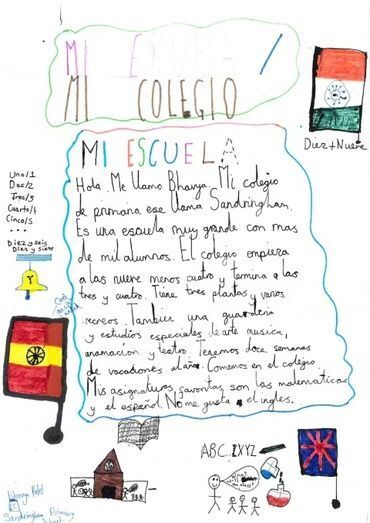 MI ESCUELA /
MI COLEGIO
Diez + Nueve
MI ESCUELA
Hola. Me llamo Bhavya. Mi colegio
de primaria ese llama Sandringham.
Es una escuela muy grande con mas
de mil alumnos. El colegio empieza
a las nueve menos cuatro y termina a las
tres y cuatro. Tiene tres plantas y varios
recreos. Tambien una guarderia
y estudios especiales de arte musica,
animacion y teatro. Tenemos doce semanas
de vacaciones al año. Comemos en el colegio.
Mis asignaturas favoritas son las matematicas
y el español. No me gusta el ingles.
Uno/1
Dos/2
Tres/3
Cuarto/4
Cinco/5
...
Diez y seis
Diez y siete
ABC...ZXYZ
Sandringham Primary
School